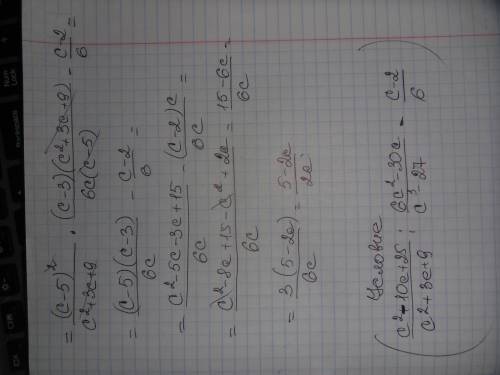 = (c-5)² / (c²+3c+9) · (c-3)(c²+3c+9) / 6c(c-5) - (c-2) / 6 =
= (c-5)(c-3) / 6c - (c-2) / 6 =
= (c²-5c-3c+15) / 6c - (c-2)c / 6c =
= (c²-8c+15-c²+2c) / 6c = (15-6c) / 6c =
= 3(5-2c) / 6c = (5-2c) / 2c
Условие
( (c²-10c+25) / (c²+3c+9) : (6c²-30c) / (c³-27) - (c-2) / 6 )
Num
Lock